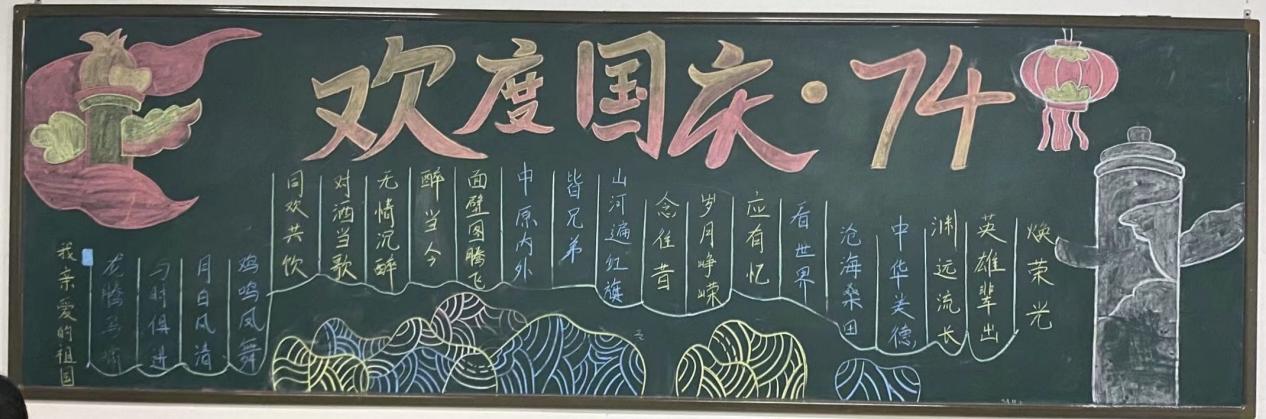 欢度国庆·74
我亲爱的祖国
龙腾马
与时俱进
月白风清
鸡鸣凤舞
同欢共饮
对酒当歌
无情沉醉
醉当今
面壁图腾飞
中原内外
皆兄弟
山河遍红旗
念往昔
岁月峥嵘
应有忆
看世界
沧海桑田
中华美德
渊远流长
英雄辈出
焕荣光